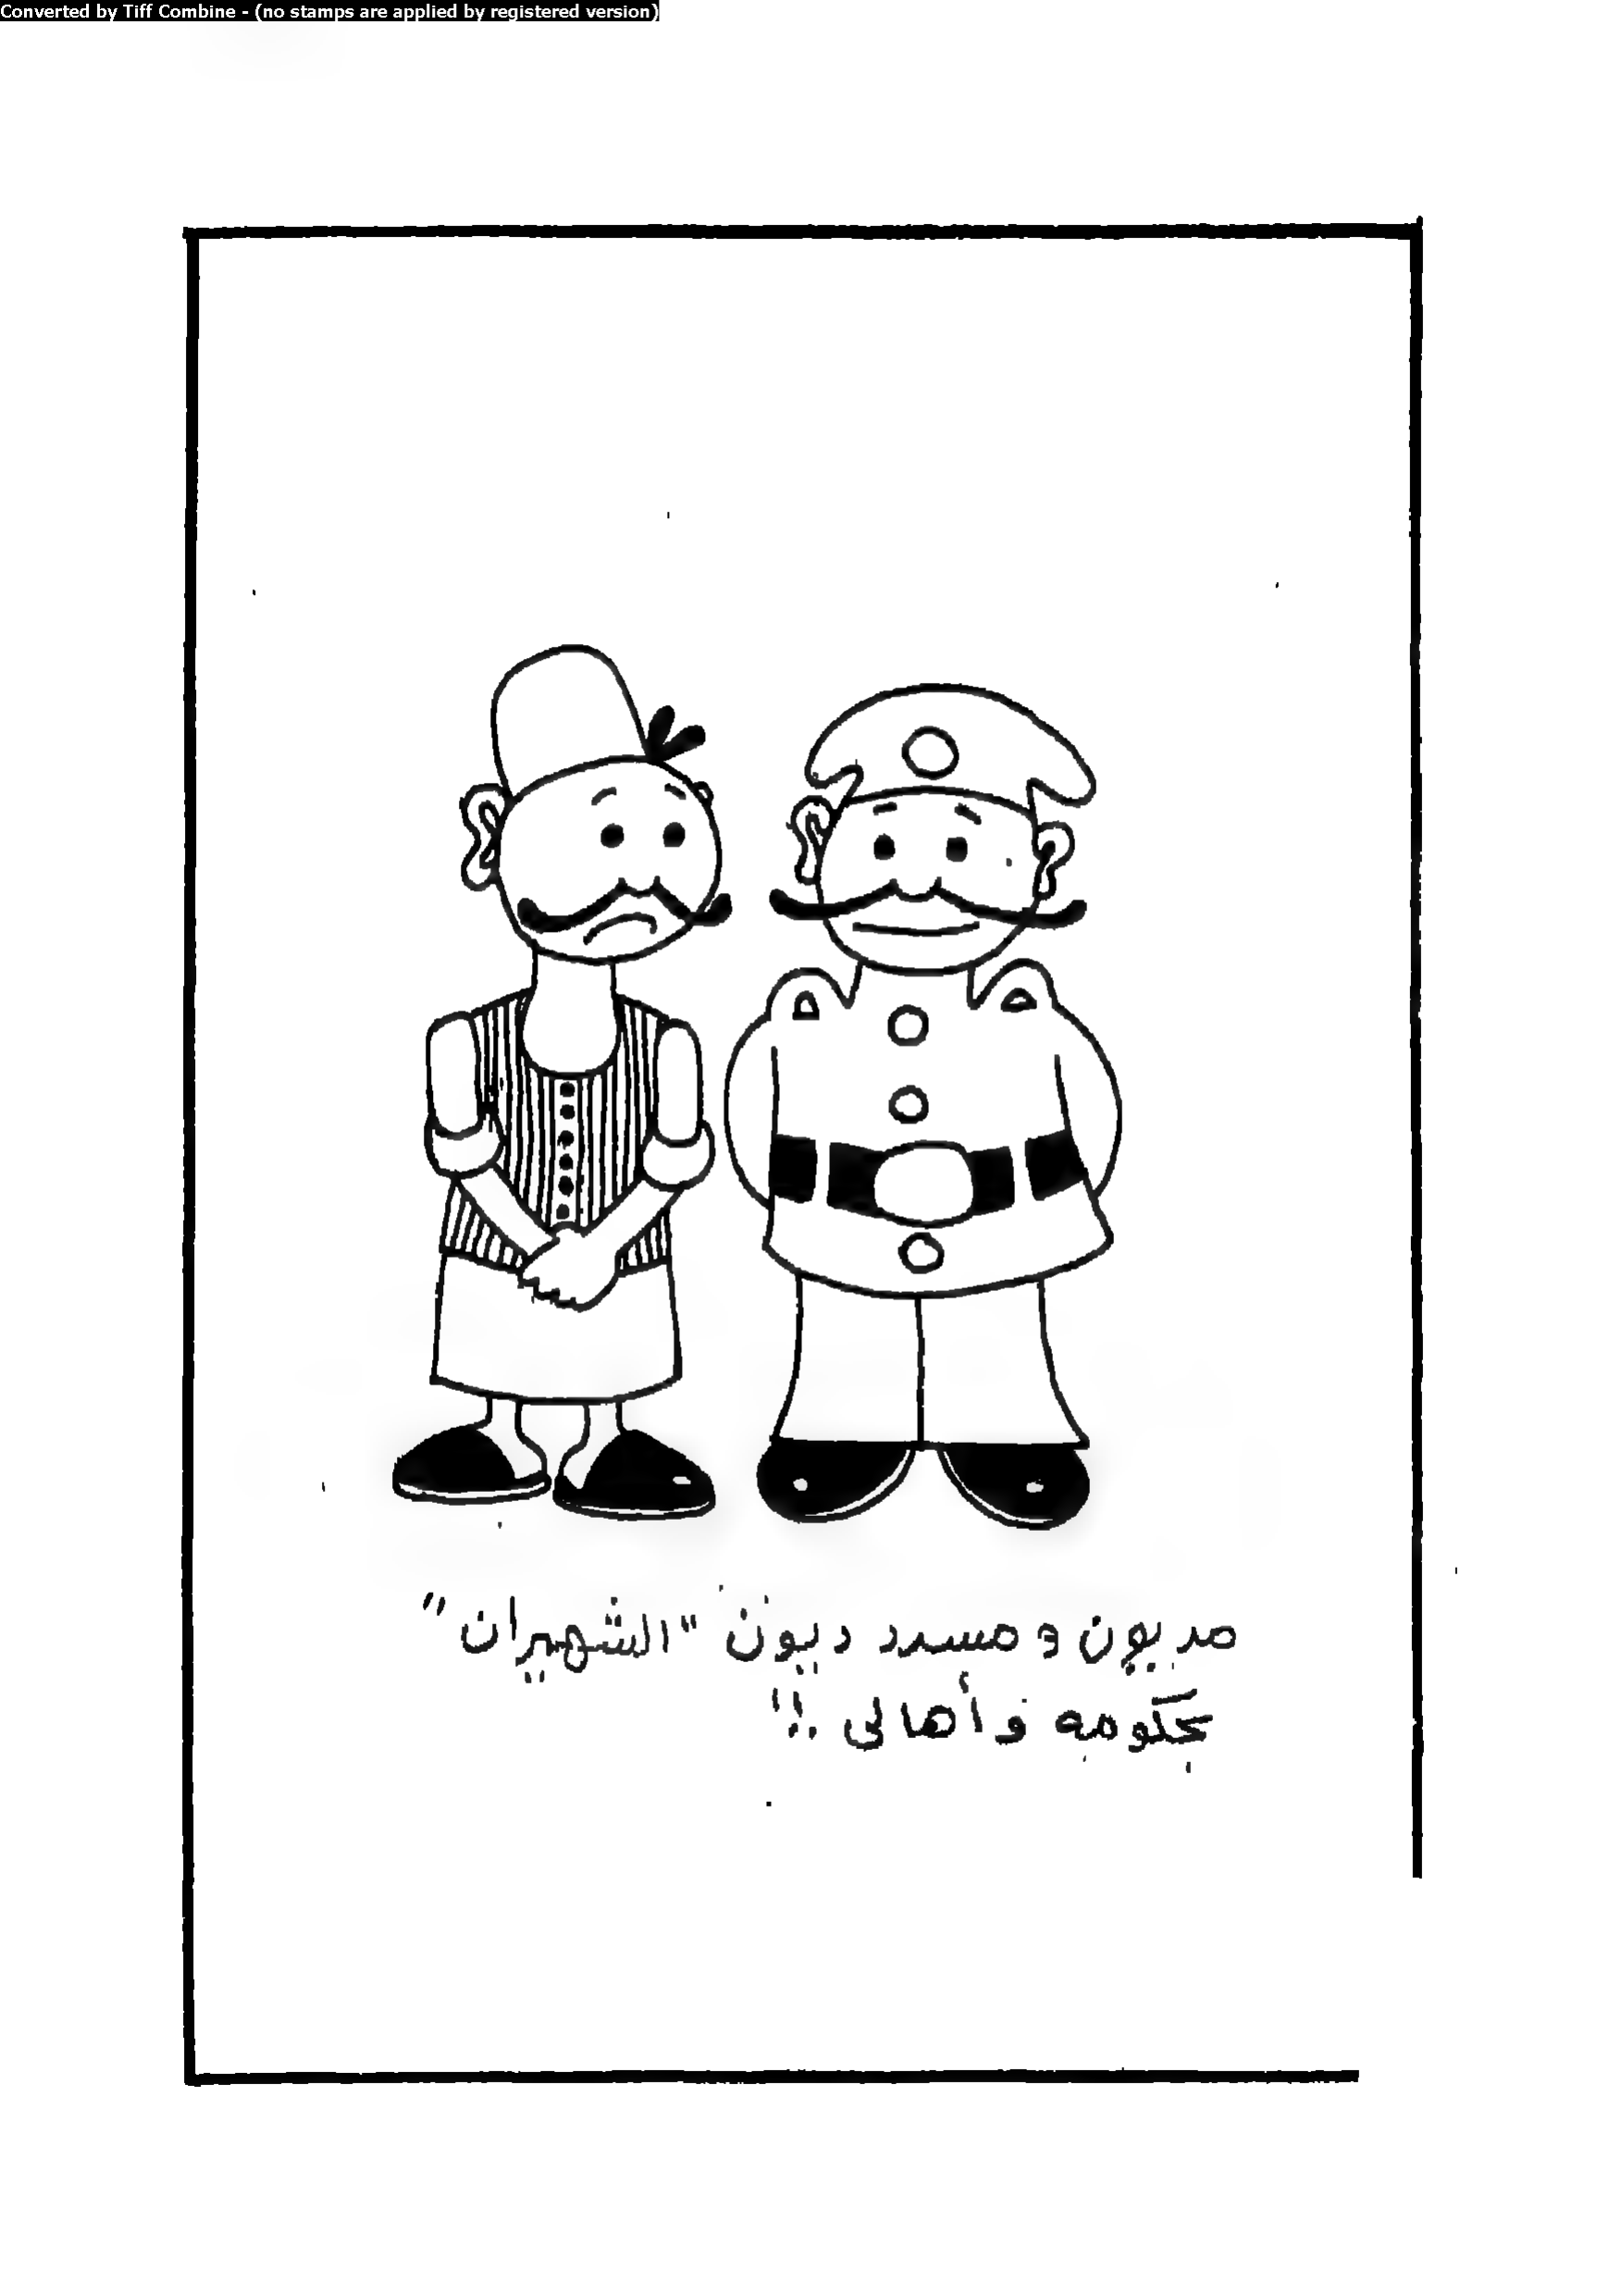 Converted by Tiff Combine - (no stamps are applied by registered version)
مديون ومسدد ديون "الشهيران"
بحكومه وأهالى !!